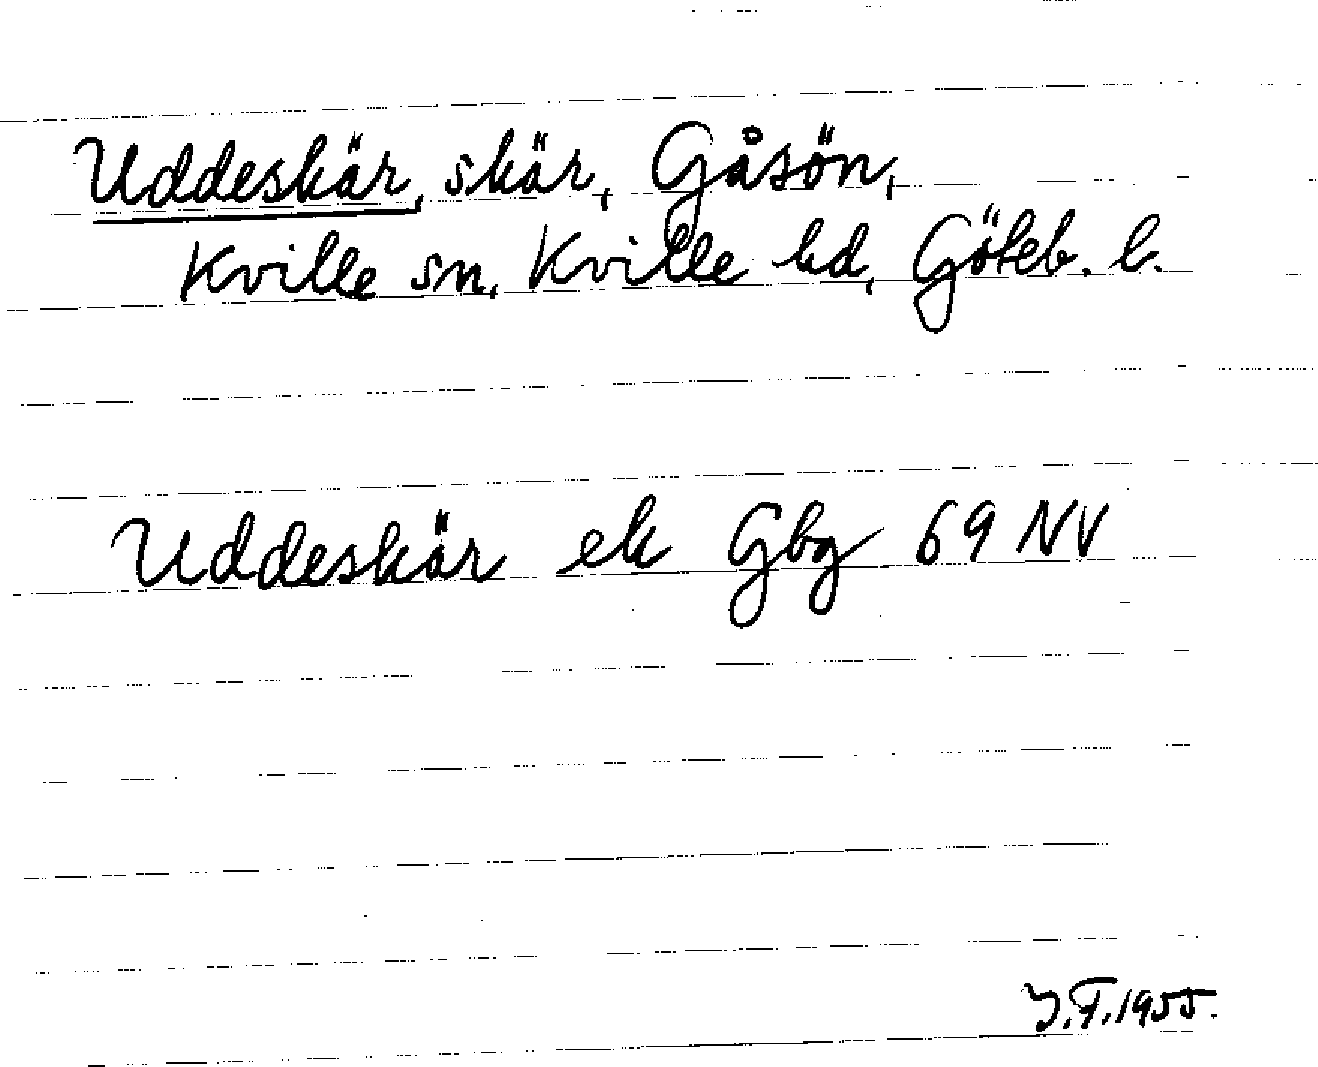 Uddeskär, skär, Gåsön,
Kville sn, Kville hd, Göteb. l.
Uddeskär ek Gbg 69 NV
J.T. 1955.